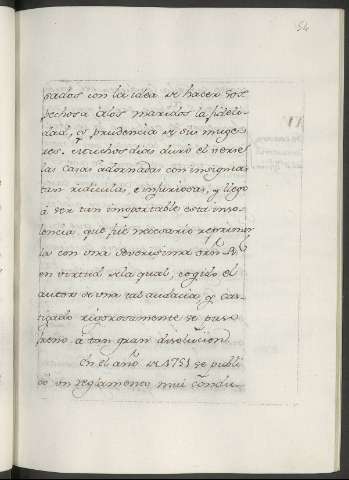 54
sados con la idea de hacer sos
pechosa a los maridos la fideli
dad, y prudencia de sus muge
res. Muchos dias duró el verse
las casas adornadas con insignias
tan ridiculas, e injuriosas, y llegó
á ser tan insoportable esta inso
lencia, que fué necesario reprimir
la con una severisima orn. Rl
en virtud de la qual, cogido el
autor de una tal audacia, y cas
tigado rigorosamente se puso
freno a tan gran disolucion.
En el año de 1751 se publi
có un reglamento mui condu